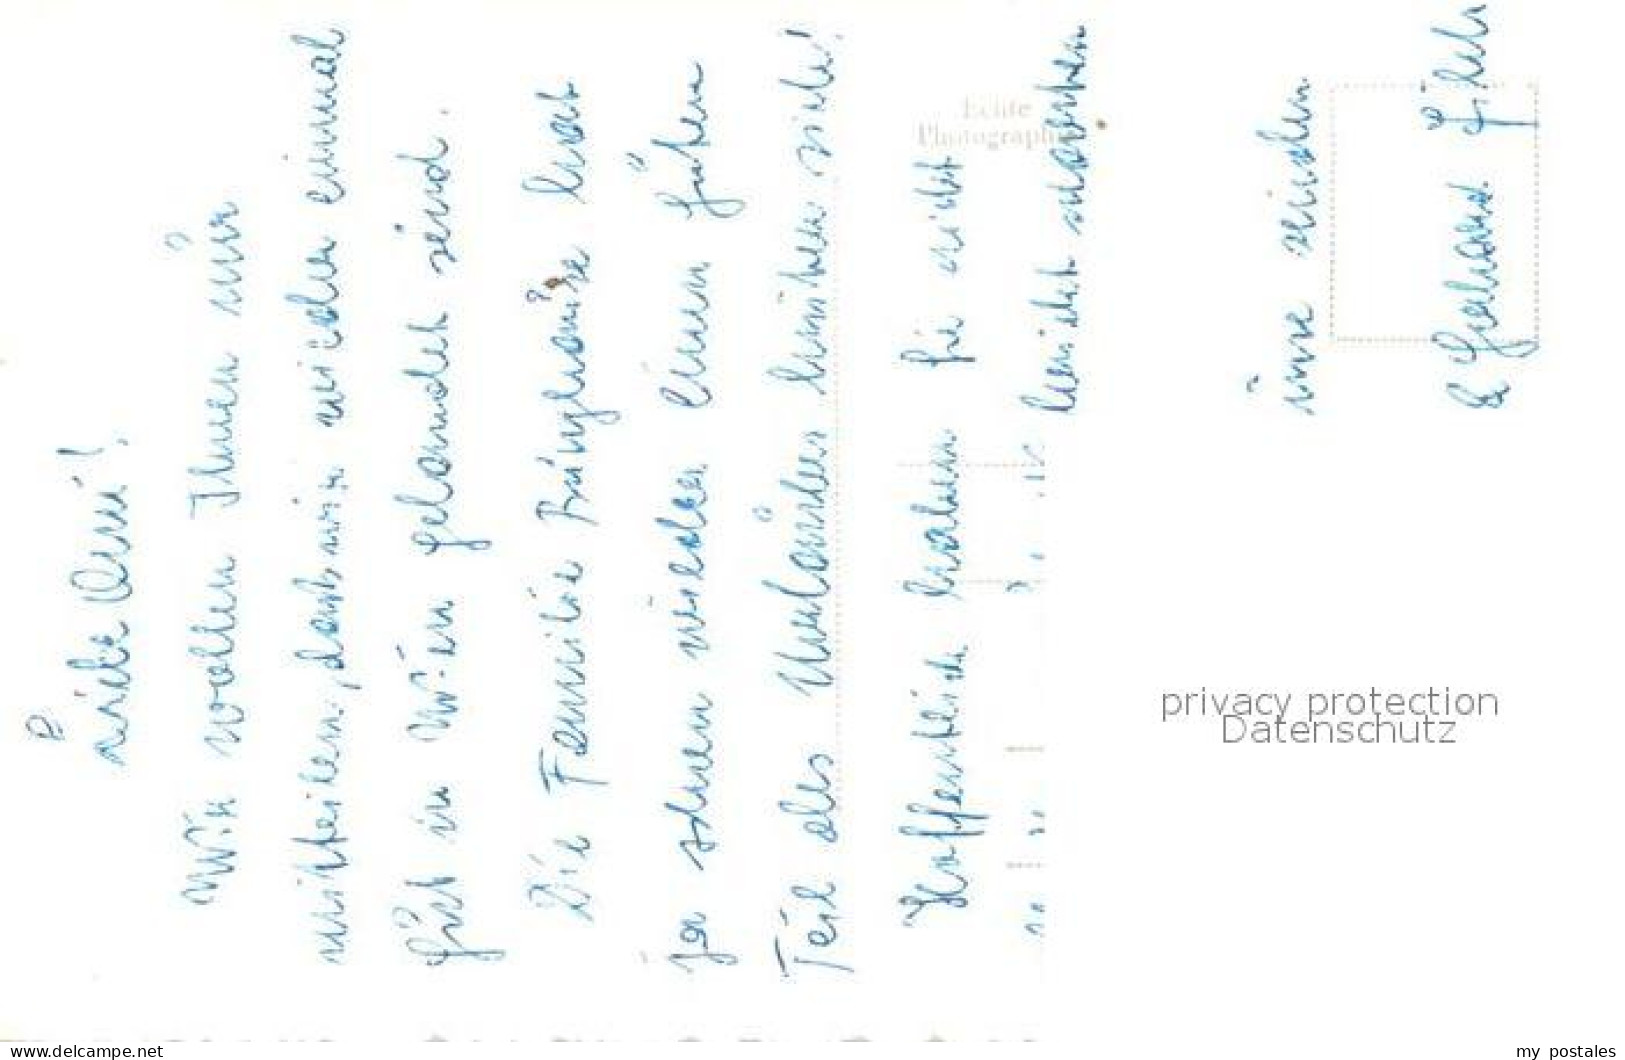 Liebe Omi!
Wir wollen Ihnen nur
mitteilen, dass wir wieder einmal
gut in Wien gelandet sind.
Die Familie hat
ja schon wieder einen guten
Teil des Urlaubes hinter sich!
Hoffentlich haben Sie nicht
uns wieder
Echte
Photographie
privacy protection
Datenschutz
www.delcampe.net
my_postales